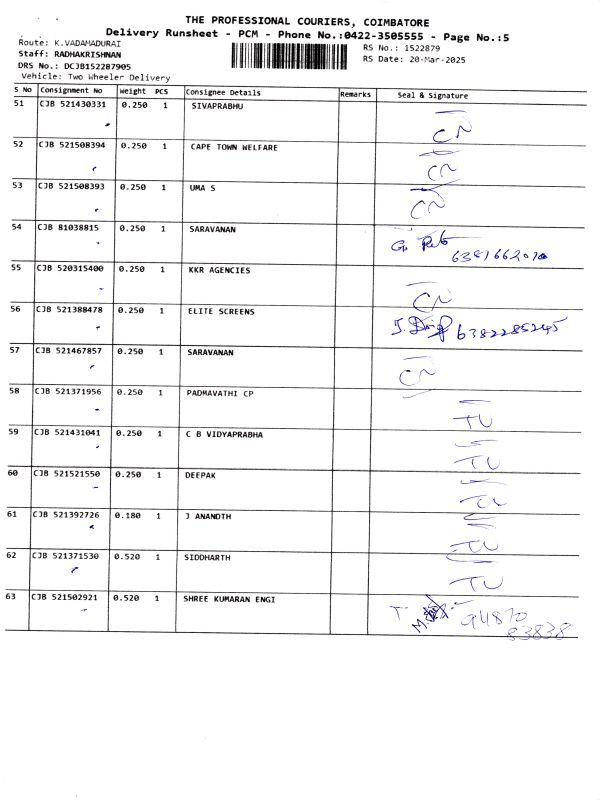 THE PROFESSIONAL COURIERS, COIMBATORE
Delivery Runsheet - PCM - Phone No.:0422-3505555 - Page No.:5
Route: K.VADAMADURAI
RS No.: 1522879
Staff: RADHAKRISHNAN
RS Date: 20-Mar-2025
DRS No.: DCJB152287905
Vehicle: Two Wheeler Delivery
S No Consignment No Weight PCS Consignee Details Remarks Seal & Signature
51 CJB 521430331 0.250 1 SIVAPRABHU CN
52 CJB 521508394 0.250 1 CAPE TOWN WELFARE CN
53 CJB 521508393 0.250 1 UMA S CN
54 CJB 81038815 0.250 1 SARAVANAN
55 CJB 520315400 0.250 1 KKR AGENCIES CN
56 CJB 521388478 0.250 1 ELITE SCREENS 6382285245
57 CJB 521467857 0.250 1 SARAVANAN CN
58 CJB 521371956 0.250 1 PADMAVATHI CP TU
59 CJB 521431041 0.250 1 C B VIDYAPRABHA TU
60 CJB 521521550 0.250 1 DEEPAK TU
61 CJB 521392726 0.180 1 J ANANDTH TU
62 CJB 521371530 0.520 1 SIDDHARTH TU
63 CJB 521502921 0.520 1 SHREE KUMARAN ENGI 94870
83838